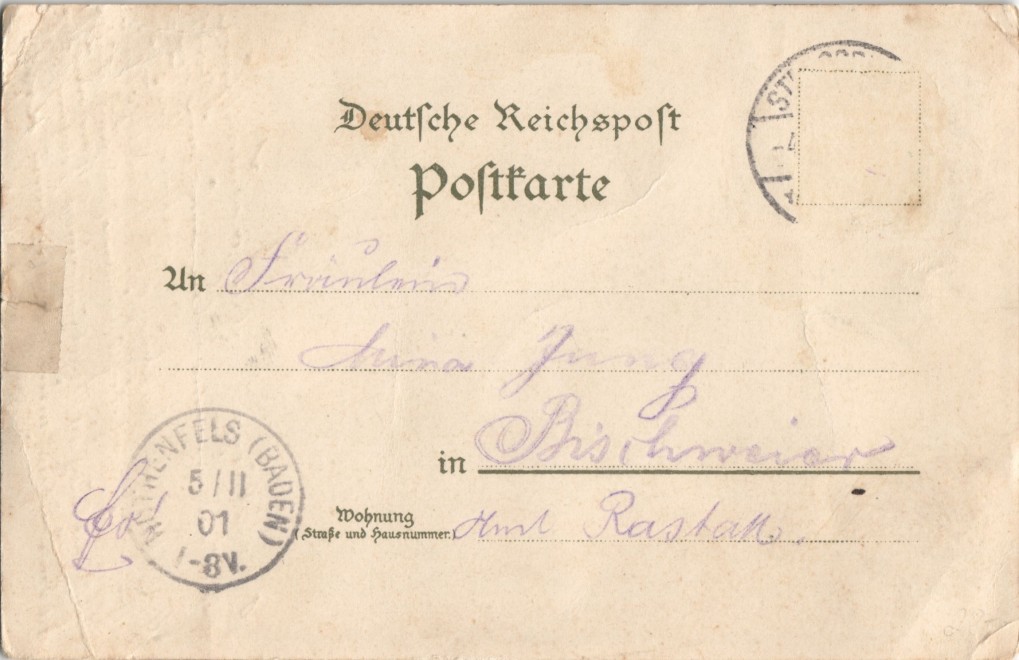 Deutsche Reichspost
Postkarte
An Fräulein
Jung
in Bischweier
Wohnung
(Straße und Hausnummer)
Amt Rastatt.
ROTHENFELS (BADEN)
5/11
01
7-8V.